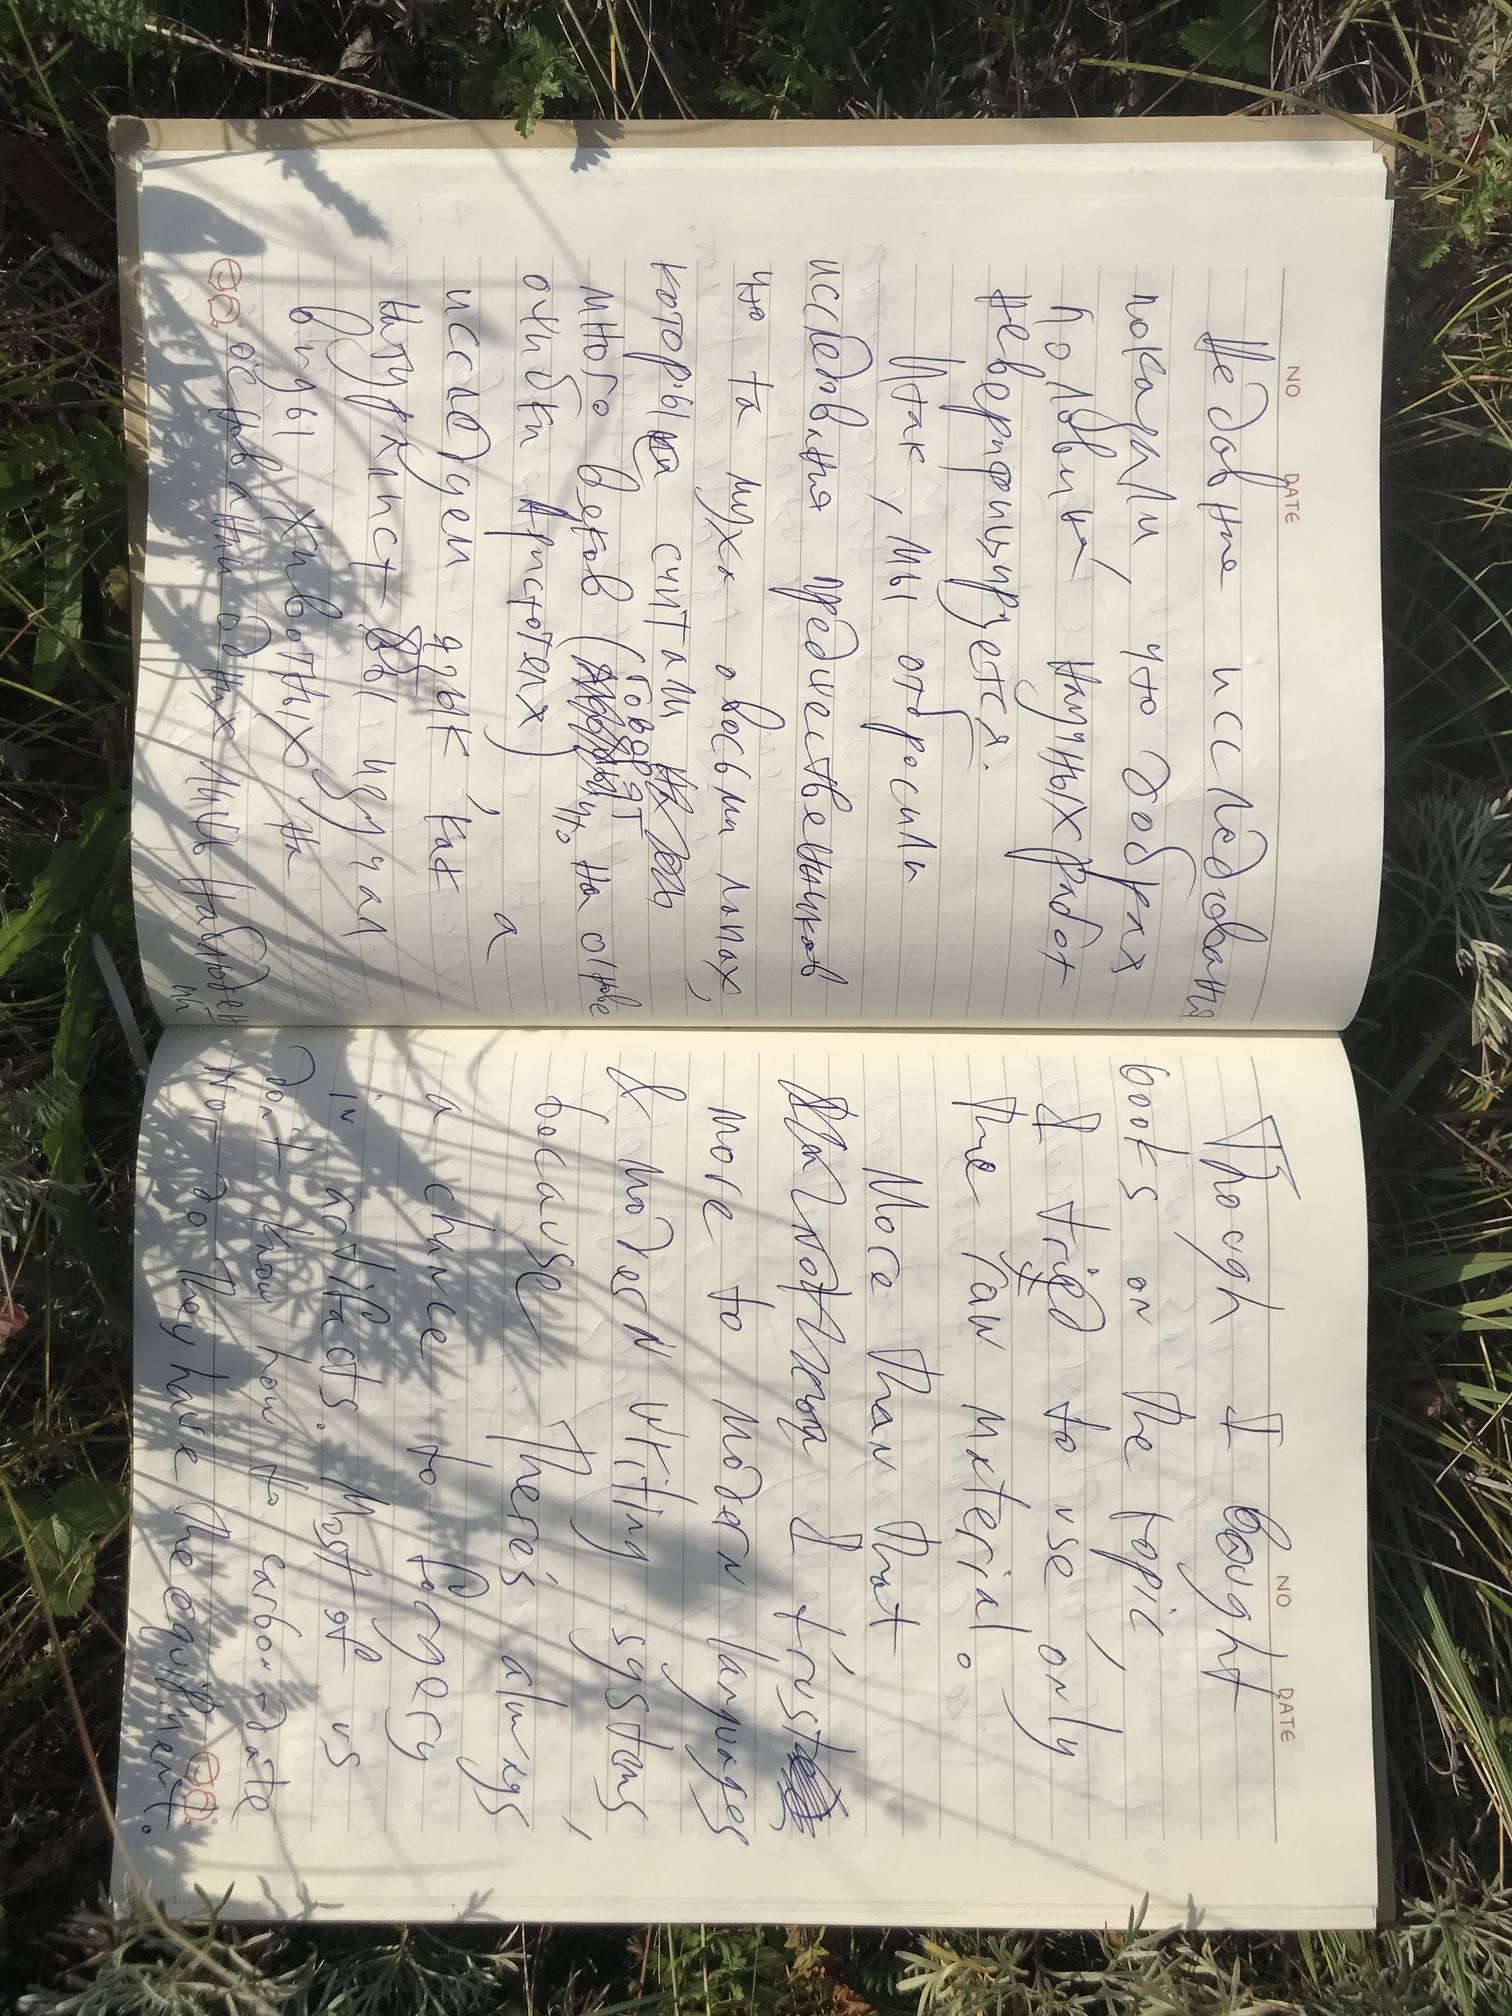 NO DATE
Недавние исследования
показали, что добрая
половина научных работ
неверифицируется.
Итак, мы отбросили
исследования предшественников
что та муха о восьми лапах,
которы считали
много веков (говорят что на основе
ошибки Аристотеля) а
исследуем язык, как
натуралист бы изучал
виды животных на
основании одних лишь наблюден
ий
NO DATE
Though I bought
books on the topic,
I tried to use only
the raw material.
More than that
I trust
more to modern languages
& modern writing systems,
because There's always
a chance to forgery
in artifacts. Most of us
don't know how to carbon-date
nor do they have the equipment.